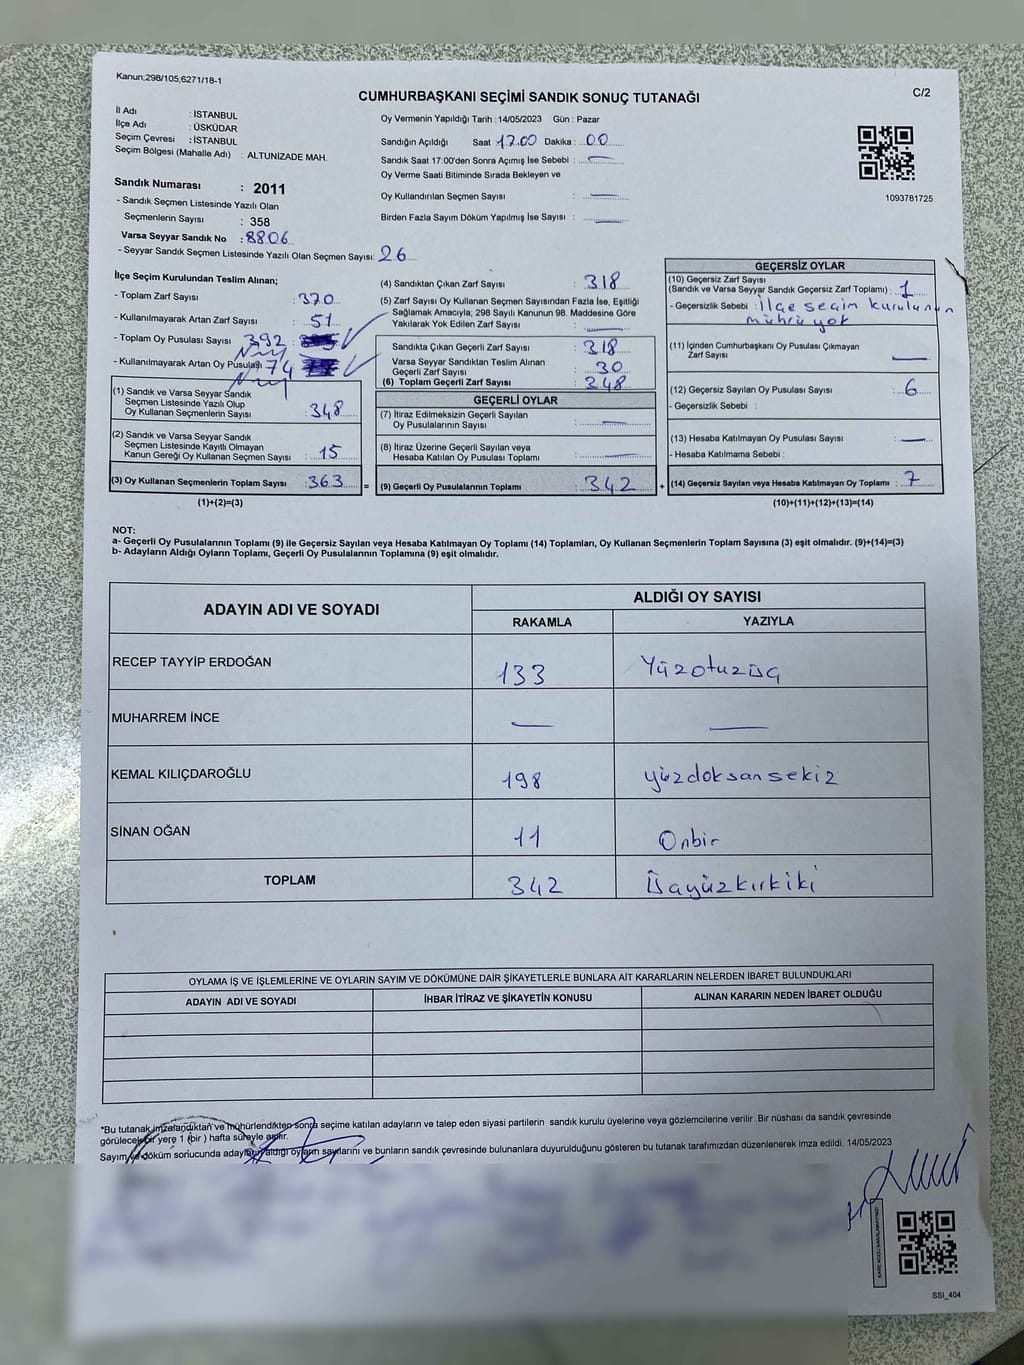 Kanun;298/105;6271/18-1
C/2
CUMHURBAŞKANI SEÇİMİ SANDIK SONUÇ TUTANAĞI
İl Adı : İSTANBUL
İlçe Adı : ÜSKÜDAR
Seçim Çevresi : İSTANBUL
Seçim Bölgesi (Mahalle Adı) : ALTUNİZADE MAH.
Sandık Numarası : 2011
- Sandık Seçmen Listesinde Yazılı Olan
Seçmenlerin Sayısı : 358
Varsa Seyyar Sandık No : 8806
- Seyyar Sandık Seçmen Listesinde Yazılı Olan Seçmen Sayısı: 26
Oy Vermenin Yapıldığı Tarih :14/05/2023 Gün : Pazar
Sandığın Açıldığı Saat 17.00 Dakika : 00
Sandık Saat 17:00'den Sonra Açımış İse Sebebi : —
Oy Verme Saati Bitiminde Sırada Bekleyen ve
Oy Kullandırılan Seçmen Sayısı : —
Birden Fazla Sayım Döküm Yapılmış İse Sayısı : —
1093781725
İlçe Seçim Kurulundan Teslim Alınan;
- Toplam Zarf Sayısı : 370
- Kullanılmayarak Artan Zarf Sayısı : 51
- Toplam Oy Pusulası Sayısı : 392
- Kullanılmayarak Artan Oy Pusulası 74
(1) Sandık ve Varsa Seyyar Sandık
Seçmen Listesinde Yazılı Olup
Oy Kullanan Seçmenlerin Sayısı : 348
(2) Sandık ve Varsa Seyyar Sandık
Seçmen Listesinde Kayıtlı Olmayan
Kanun Gereği Oy Kullanan Seçmen Sayısı : 15
(3) Oy Kullanan Seçmenlerin Toplam Sayısı : 363
(1)+(2)=(3)
(4) Sandıktan Çıkan Zarf Sayısı : 318
(5) Zarf Sayısı Oy Kullanan Seçmen Sayısından Fazla İse, Eşitliği
Sağlamak Amacıyla; 298 Sayılı Kanunun 98. Maddesine Göre
Yakılarak Yok Edilen Zarf Sayısı : —
Sandıkta Çıkan Geçerli Zarf Sayısı : 318
Varsa Seyyar Sandıktan Teslim Alınan
Geçerli Zarf Sayısı : 30
(6) Toplam Geçerli Zarf Sayısı : 348
GEÇERLİ OYLAR
(7) İtiraz Edilmeksizin Geçerli Sayılan
Oy Pusulalarının Sayısı : —
(8) İtiraz Üzerine Geçerli Sayılan veya
Hesaba Katılan Oy Pusulası Toplamı : —
= (9) Geçerli Oy Pusulalarının Toplamı : 342 +
GEÇERSİZ OYLAR
(10) Geçersiz Zarf Sayısı
(Sandık ve Varsa Seyyar Sandık Geçersiz Zarf Toplamı) : 1
- Geçersizlik Sebebi : İlçe seçim kurulunun
mührü yok
(11) İçinden Cumhurbaşkanı Oy Pusulası Çıkmayan
Zarf Sayısı : —
(12) Geçersiz Sayılan Oy Pusulası Sayısı : 6
- Geçersizlik Sebebi :
(13) Hesaba Katılmayan Oy Pusulası Sayısı : —
- Hesaba Katılmama Sebebi :
(14) Geçersiz Sayılan veya Hesaba Katılmayan Oy Toplamı : 7
(10)+(11)+(12)+(13)=(14)
NOT:
a- Geçerli Oy Pusulalarının Toplamı (9) ile Geçersiz Sayılan veya Hesaba Katılmayan Oy Toplamı (14) Toplamları, Oy Kullanan Seçmenlerin Toplam Sayısına (3) eşit olmalıdır. (9)+(14)=(3)
b- Adayların Aldığı Oyların Toplamı, Geçerli Oy Pusulalarının Toplamına (9) eşit olmalıdır.
ADAYIN ADI VE SOYADI ALDIĞI OY SAYISI
RAKAMLA YAZIYLA
RECEP TAYYİP ERDOĞAN 133 Yüzotuzüç
MUHARREM İNCE — —
KEMAL KILIÇDAROĞLU 198 yüzdoksansekiz
SİNAN OĞAN 11 Onbir
TOPLAM 342 Üçyüzkırkiki
OYLAMA İŞ VE İŞLEMLERİNE VE OYLARIN SAYIM VE DÖKÜMÜNE DAİR ŞİKAYETLERLE BUNLARA AİT KARARLARIN NELERDEN İBARET BULUNDUKLARI
ADAYIN ADI VE SOYADI İHBAR İTİRAZ VE ŞİKAYETİN KONUSU ALINAN KARARIN NEDEN İBARET OLDUĞU
*Bu tutanak imzalandıktan ve mühürlendikten sonra seçime katılan adayların ve talep eden siyasi partilerin sandık kurulu üyelerine veya gözlemcilerine verilir. Bir nüshası da sandık çevresinde
görülecek bir yere 1 (bir ) hafta süreyle asılır.
Sayım ve döküm sonucunda adayların aldığı oyların sayılarını ve bunların sandık çevresinde bulunanlara duyurulduğunu gösteren bu tutanak tarafımızdan düzenlenerek imza edildi. 14/05/2023
SSI_404